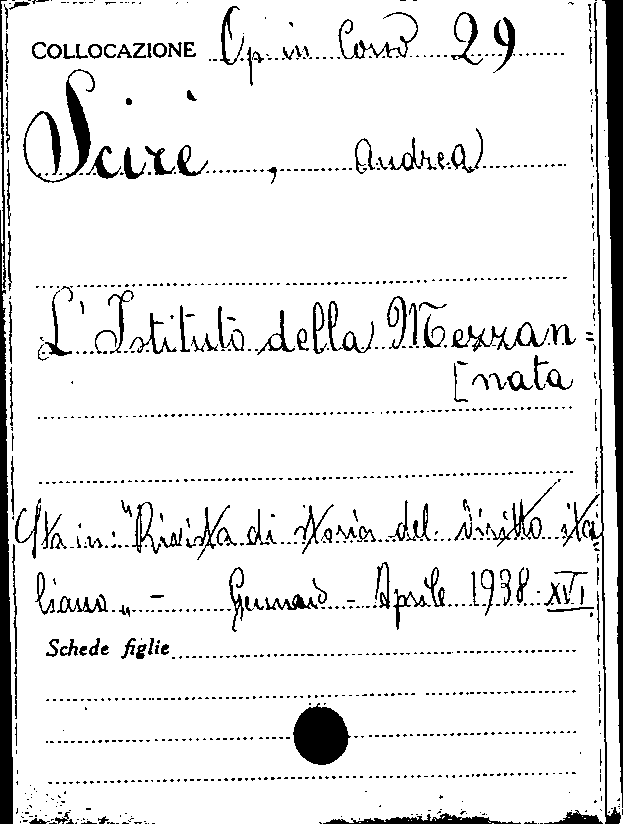 COLLOCAZIONE Op. in Corso 29
Scirè, Andrea
L'Istituto della Mezzan=
[nata
Sta in: "Rivista di storia del diritto ita
liano„ - Gennaio - Aprile 1938·XVI
Schede figlie